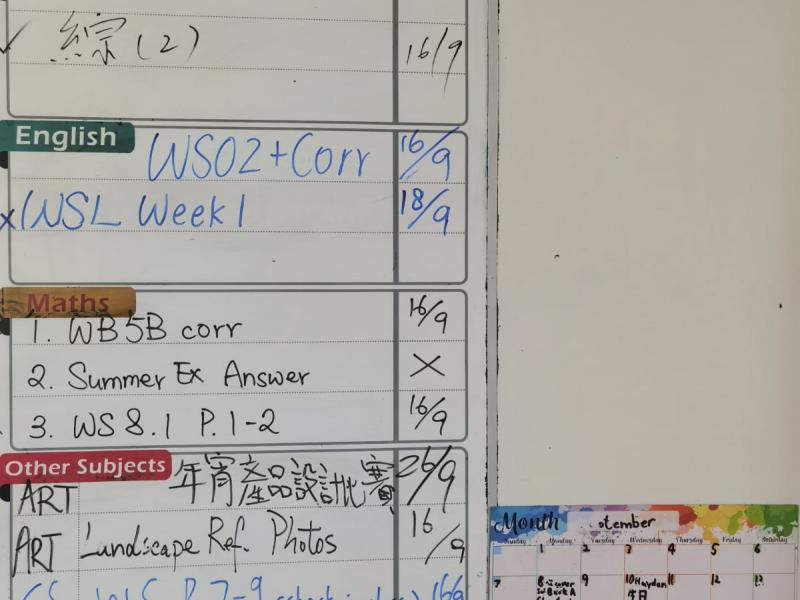 綜(2) 16/9
English
WS02+Corr 16/9
x WSL Week 1 18/9
Maths
1. WB5B corr 16/9
2. Summer Ex Answer X
3. WS 8.1 P.1-2 16/9
Other Subjects
ART 年宵產品設計比賽 26/9
ART Landscape Ref. Photos 16/9
WS P.7-9 16/9
Month tember
Sunday Monday Tuesday Wednesday Thursday Friday Saturday
1 2 3 4 5 6
7 8 9 10 Hayden 11 12 13